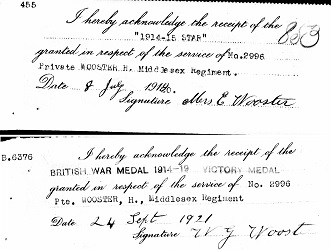 455
I hereby acknowledge the receipt of the
"1914-15 STAR"
granted in respect of the service of No. 2996
Private WOOSTER.H. Middlesex Regiment.
Date 8 July 19
Signature Mrs E Wooster
B.6376
I hereby acknowledge the receipt of the
BRITISH WAR MEDAL 1914-19 VICTORY MEDAL
granted in respect of the service of No. 2996
Pte. WOOSTER, H., Middlesex Regiment
Date 24 Sept 1921
Signature W J Woost